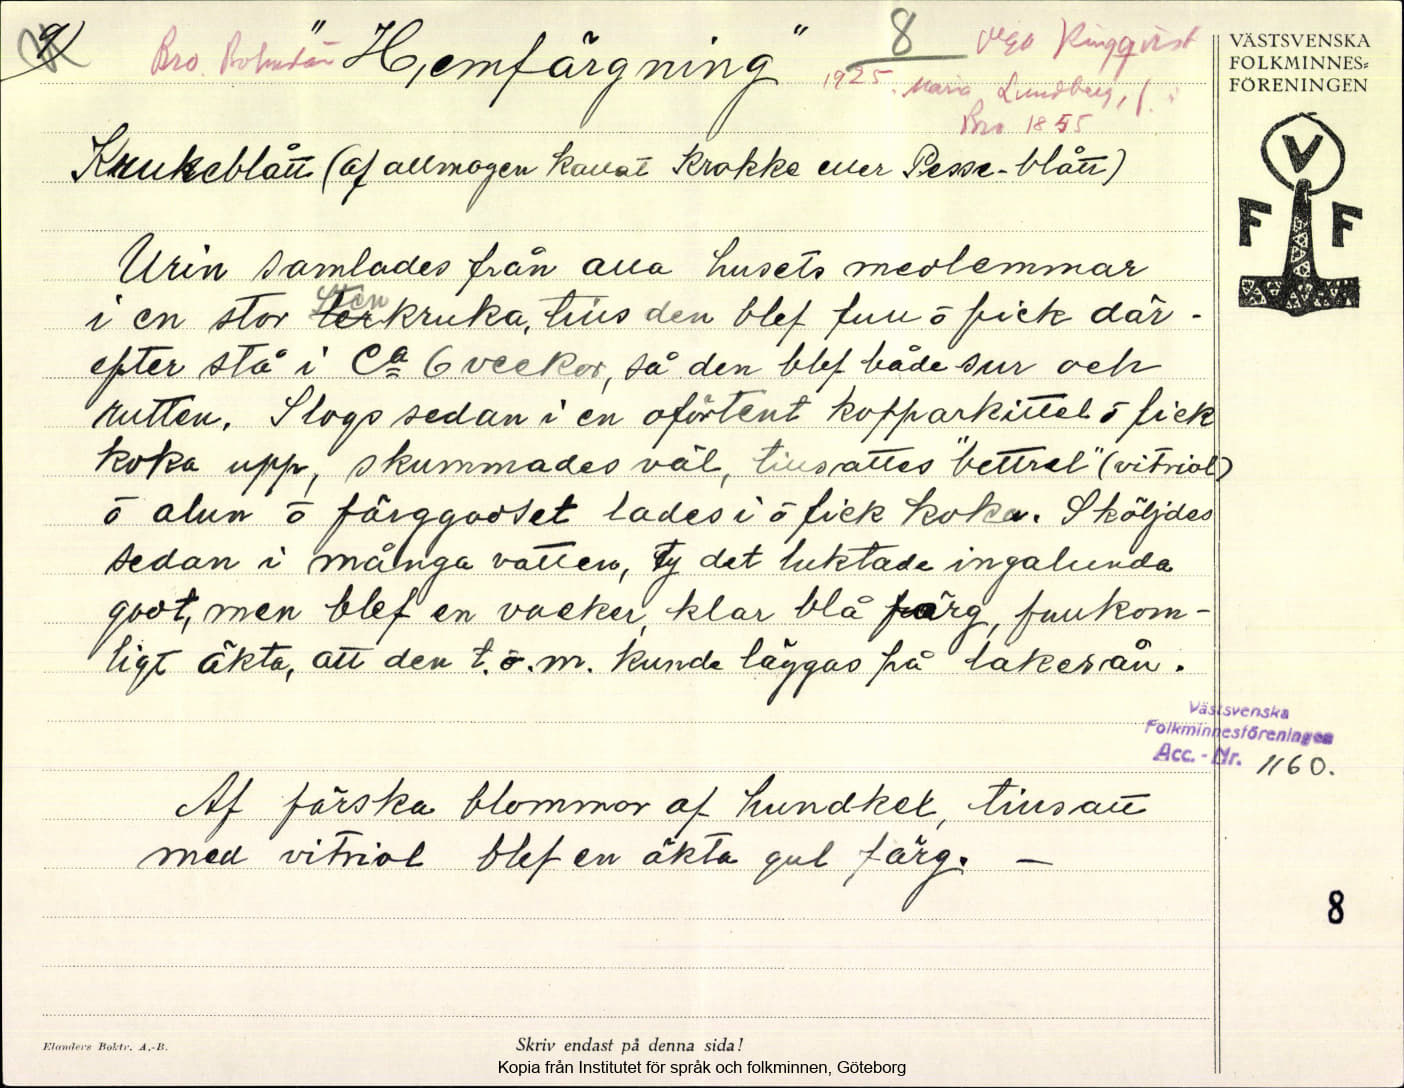 9)
Bro. Bohuslän "Hemfärgning" 8 Ringqvist
1925. Maria Lundberg, f.
Bro 1855
VÄSTSVENSKA
FOLKMINNES=
FÖRENINGEN
V
F F
Krukeblått (af allmogen kallat Krokke eller Pesse-blått)
Urin samlades från alla husets medlemmar
i en stor sten kruka, tills den blef full ō fick där-
efter stå i Ca 6 veckor, så den blef både sur och
rutten. Slogs sedan i en oförtent kopparkittel ō fick
koka upp, skummades väl, tillsattes "bettrel" (vitriol)
ō alun ō färggodset lades i ō fick koka. Sköljdes
sedan i många vatten, ty det luktade ingalunda
godt, men blef en vacker, klar blå färg, fullkom-
ligt äkta, att den t.o.m. kunde läggas på lakesån.
Västsvenska
Folkminnesföreningen
Acc.-Nr. 1160.
Af färska blommor af hundkex, tillsatt
med vitriol blef en äkta gul färg. —
8
Elanders Boktr. A.-B.
Skriv endast på denna sida!
Kopia från Institutet för språk och folkminnen, Göteborg